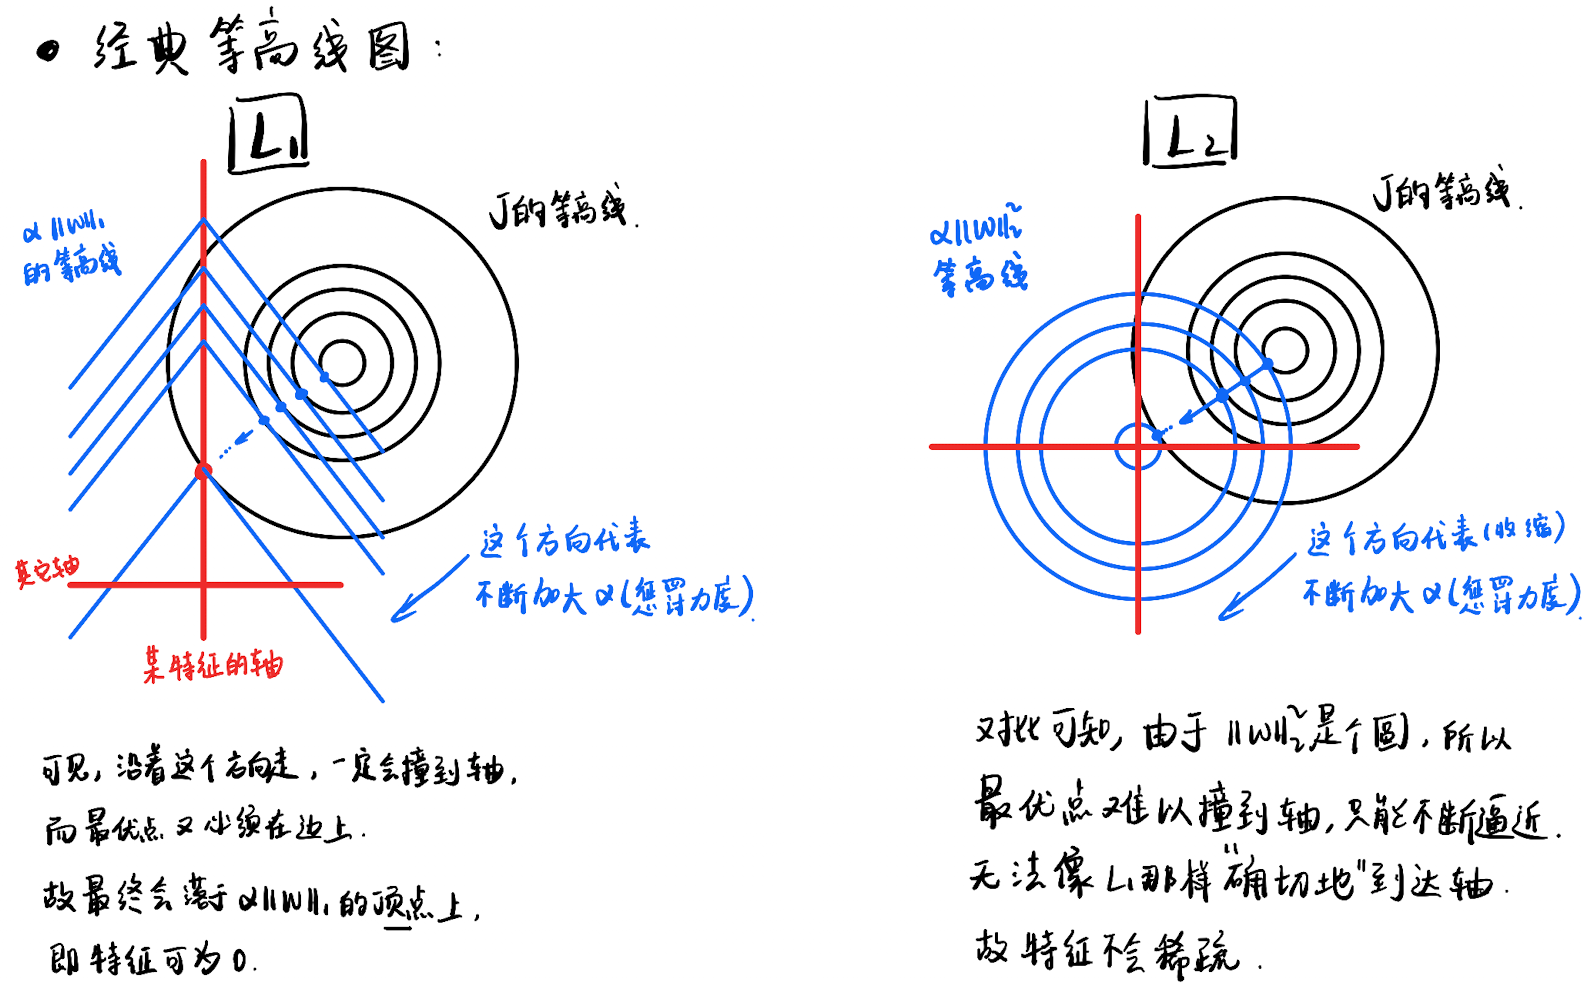 • 经典等高线图:
L₁
J的等高线.
α||W||₁
的等高线
这个方向代表
不断加大α(惩罚力度).
其它轴
某特征的轴
可见, 沿着这个方向走, 一定会撞到轴,
而最优点又必须在边上.
故最终会落于α||W||₁的顶点上,
即特征可为0.
L₂
J的等高线.
α||W||₂²
等高线
这个方向代表(收缩)
不断加大α(惩罚力度).
对比可知, 由于||W||₂²是个圆, 所以
最优点难以撞到轴, 只能不断逼近.
无法像L₁那样"确切地"到达轴.
故特征不会稀疏.